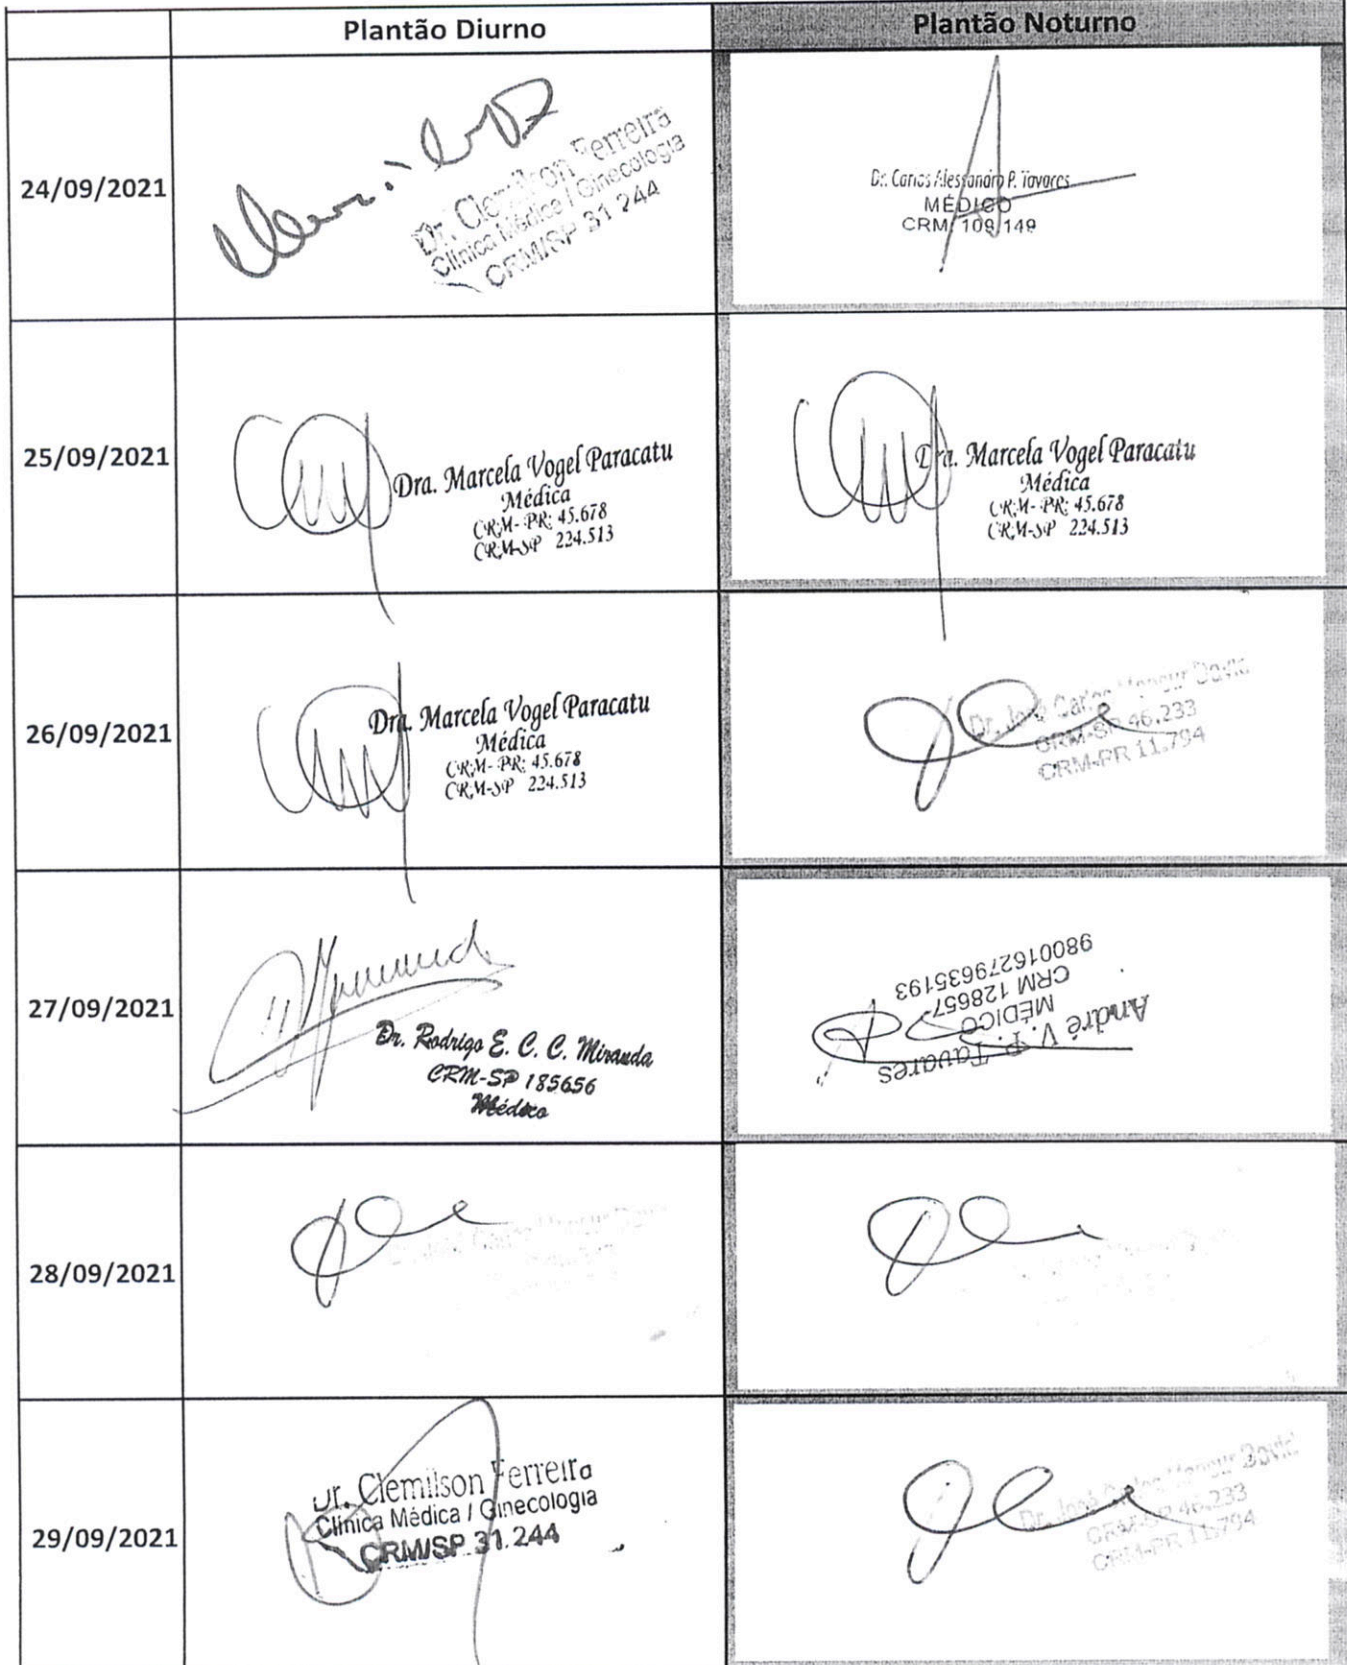 Plantão Diurno
Plantão Noturno
24/09/2021
Dr. Clemilson Ferreira
Clínica Médica / Ginecologia
CRM/SP 31 244
Dr. Carlos Alessandro P. Tavares
MÉDICO
CRM 109 149
25/09/2021
Dra. Marcela Vogel Paracatu
Médica
CRM-PR: 45.678
CRM-SP 224.513
Dra. Marcela Vogel Paracatu
Médica
CRM-PR: 45.678
CRM-SP 224.513
26/09/2021
Dra. Marcela Vogel Paracatu
Médica
CRM-PR: 45.678
CRM-SP 224.513
Dr. José Carlos David
CRM-SP 46.233
CRM-PR 11.794
27/09/2021
Dr. Rodrigo E. C. C. Miranda
CRM-SP 185656
Médico
André V. P. Tavares
MÉDICO
CRM 128657
980016279635193
28/09/2021
José Carlos
29/09/2021
Dr. Clemilson Ferreira
Clínica Médica / Ginecologia
CRM/SP 31.244
Dr. José Carlos David
CRM-SP 46.233
CRM-PR 11.794